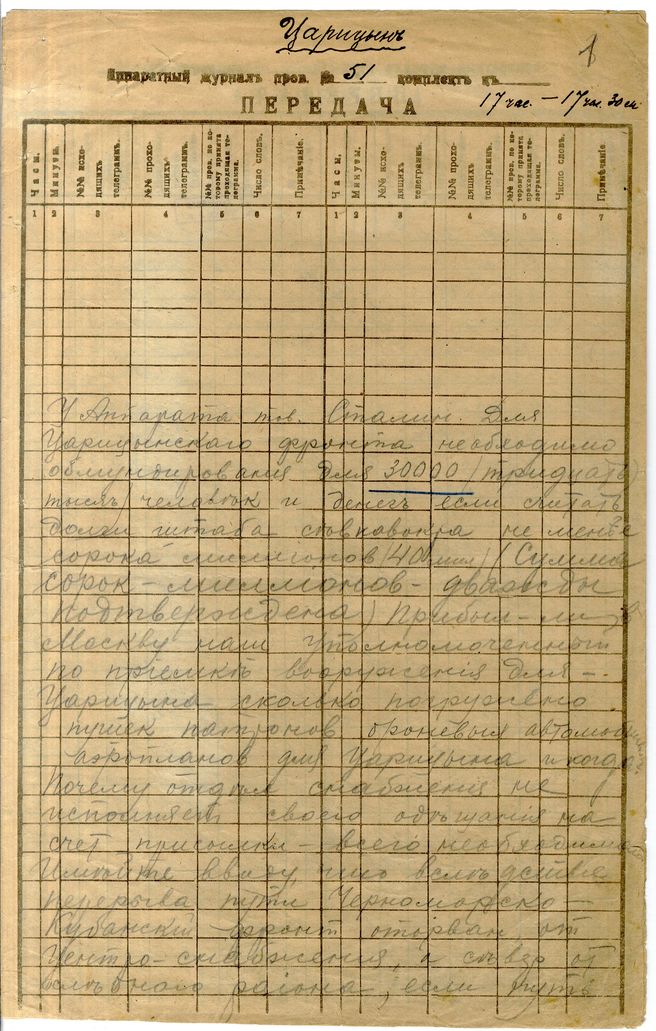 Царицынъ
1
Аппаратный журналъ пров. № 51 комплектъ къ
17 час. – 17 час. 30 м.
ПЕРЕДАЧА
Часы. Минуты. №№ исходящихъ телеграммъ. №№ проходящихъ телеграммъ. №№ пров. по которому принята проходящая телеграмма. Число словъ. Примѣчаніе. Часы. Минуты. №№ исходящихъ телеграммъ. №№ проходящихъ телеграммъ. №№ пров. по которому принята проходящая телеграмма. Число словъ. Примѣчаніе.
1 2 3 4 5 6 7 1 2 3 4 5 6 7
У Аппарата тов. Сталин. Для
Царицынскаго фронта необходимо
обмундированія для 30000 (тридцать)
тысяч) человѣк и денег если считать
долги штаба сѣвкавокра не менѣе
сорока миллионов (40 мил) (Сумма
сорок – миллионов – дважды
подтверждена) Прибыл – ли в
Москву наш Уполномоченный
по приемкѣ вооруженія для –
Царицына сколько погружено
пушек патронов броневых автомоб
аэропланов для Царицына и когда
Почему отдѣл снабженія не
исполняет своего обѣщанія на
счет присылки – всего необходимаго
Имѣйте ввиду, что вслѣдствіе
перерыва пути Черноморско –
Кубанскій фронт оторван от
Центро-снабженія, а сѣвер от
хлѣбного района, если путь